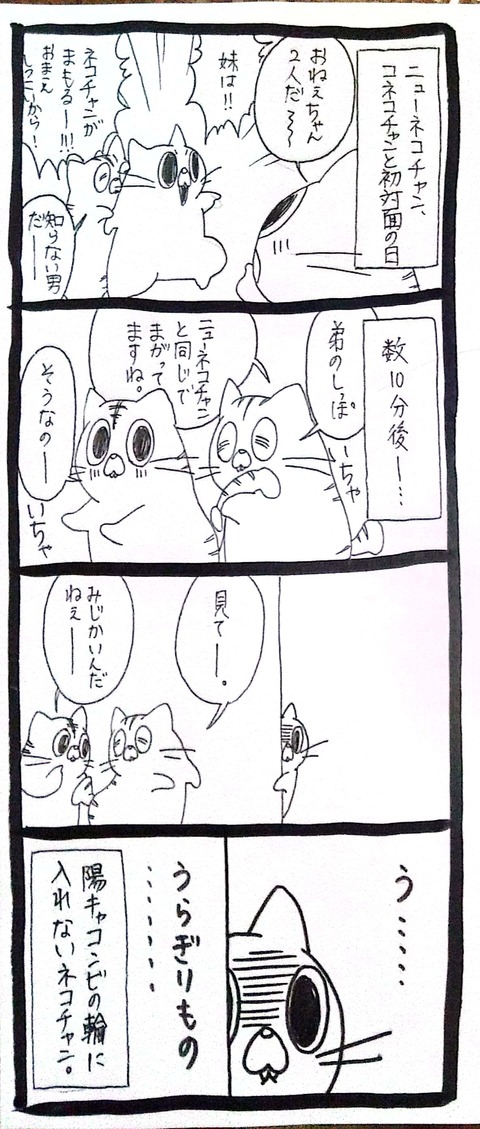 ニューネコチャン、
コネコチャンと初対面の日
おねぇちゃん
2人だ〜〜
妹は!!
ネコチャンが
まもるー!!!
おまえ
しつこいから!
知らない男
だー
数10分後ー…
弟のしっぽ。
ニューネコチャン
と同じで
まがって
ますね。
いちゃ
そうなのー
いちゃ
見てー。
みじかいんだ
ねぇー
う……
うらぎりもの
………
陽キャコンビの輪に
入れないネコチャン。